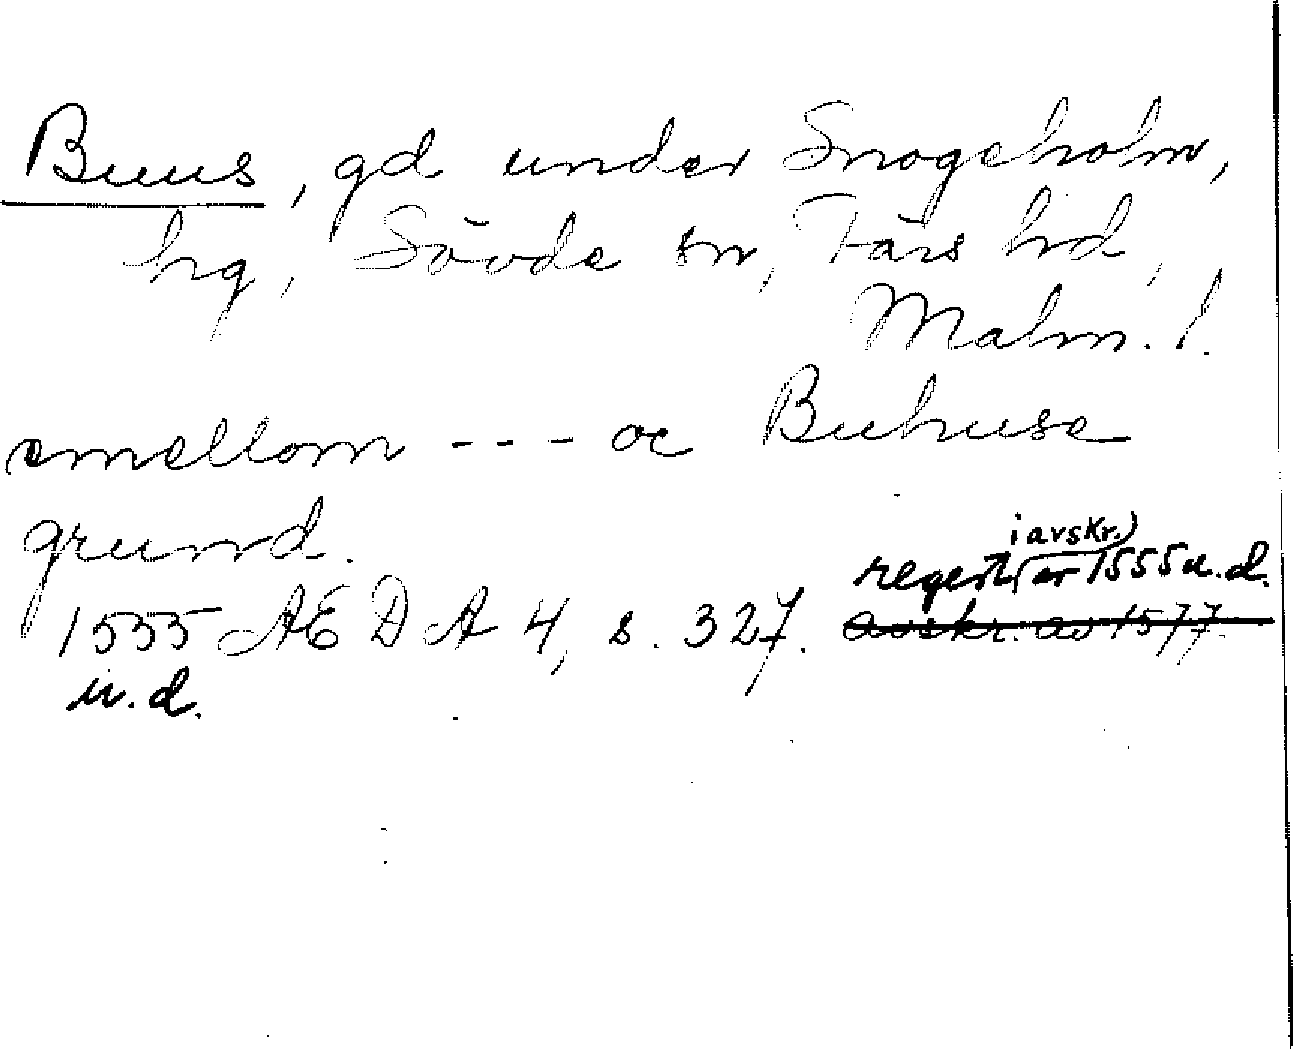 Buus, gd under Snogeholm,
hg, Sövde sn, Färs hd,
Malm. l.
emellom --- oc Buhuse
grund.
i avskr.)
regest (av 1555 u.d.
1555 AEDA 4, s. 327. avskr. av 1577.
u.d.